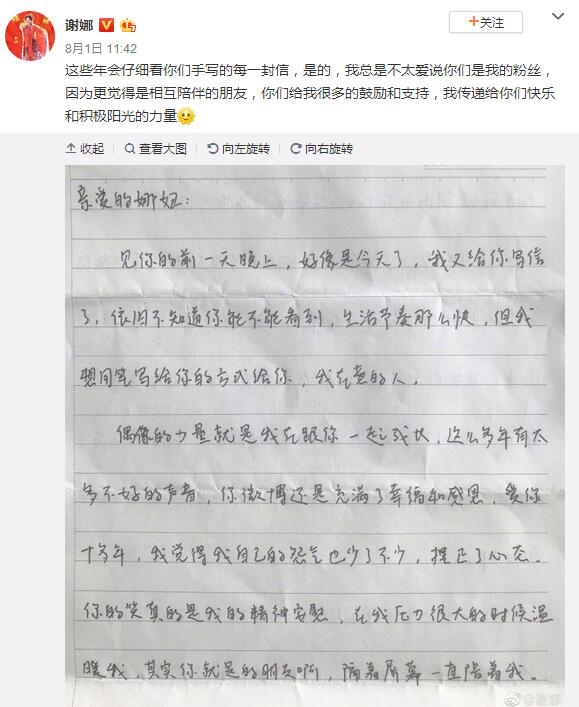 谢娜
+关注
8月1日 11:42
这些年会仔细看你们手写的每一封信，是的，我总是不太爱说你们是我的粉丝，
因为更觉得是相互陪伴的朋友，你们给我很多的鼓励和支持，我传递给你们快乐
和积极阳光的力量
收起 查看大图 向左旋转 向右旋转
亲爱的娜姐：
见你的前一天晚上，好像是今天了，我又给你写信
了，依旧不知道你能不能看到，生活节奏那么快，但我
想用笔写给你的方式给你，我在意的人。
偶像的力量就是我在跟你一起成长，这么多年有太
多不好的声音，你微博还是充满了幸福和感恩，爱你
十多年，我觉得我自己的怨气也少了不少，摆正了心态。
你的笑真的是我的精神安慰，在我压力很大的时候温
暖我，其实你就是的朋友啊，隔着屏幕一直陪着我。
@谢娜